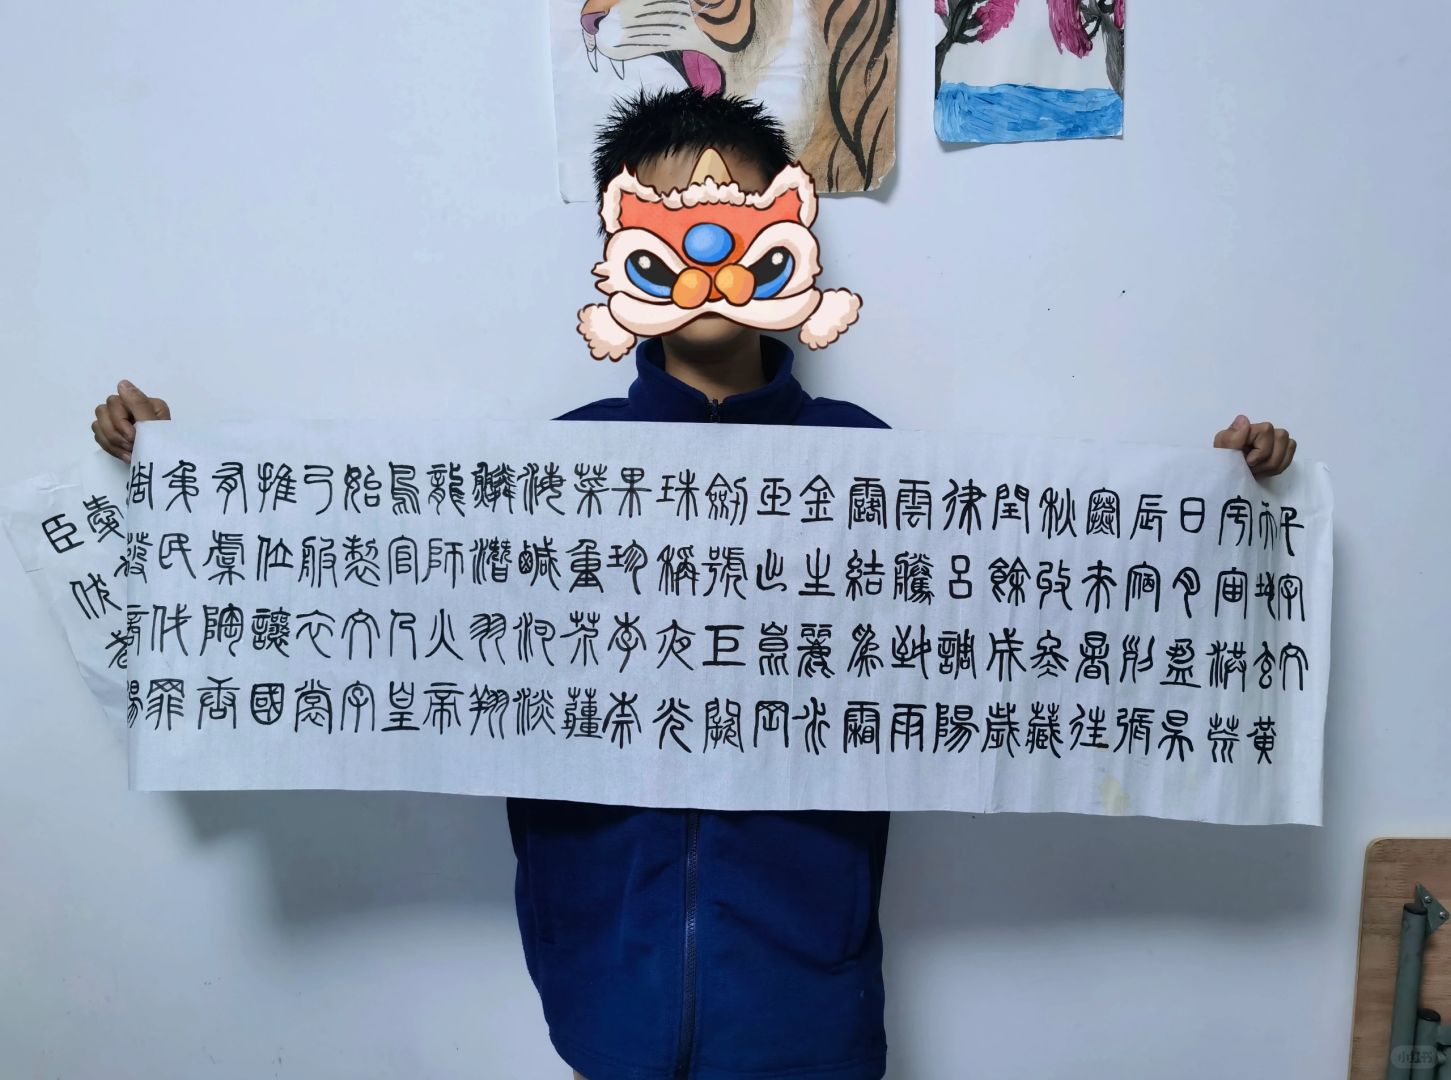 千字文
天地玄黃
宇宙洪荒
日月盈昃
辰宿列張
寒來暑往
秋收冬藏
閏餘成歲
律呂調陽
雲騰致雨
露結爲霜
金生麗水
玉出崑岡
劍號巨闕
珠稱夜光
果珍李柰
菜重芥薑
海鹹河淡
鱗潛羽翔
龍師火帝
鳥官人皇
始製文字
乃服衣裳
推位讓國
有虞陶唐
弔民伐罪
周發殷湯
愛
臣伏戎
小红书